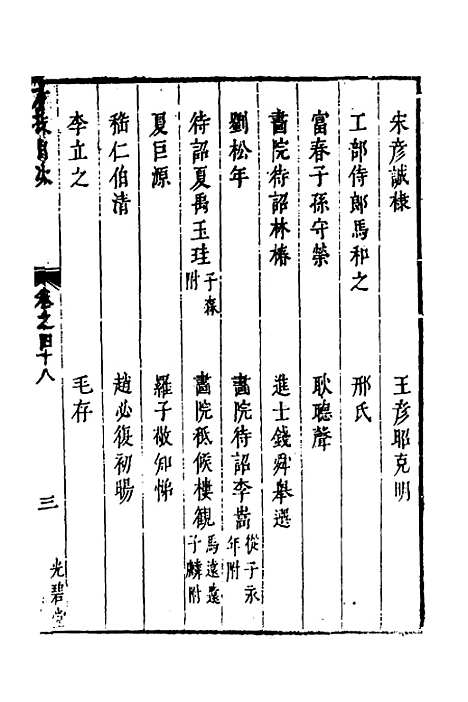 宋彥誠棣　王彥昭克明
工部侍郎馬和之　邢氏
富春子孫守榮　耿聰聲
畫院待詔林椿　進士錢舜舉選
劉松年　畫院待詔李嵩從子永年附
待詔夏禹玉珪子森附　畫院祗候樓觀馬遠遠子麟附
夏巨源　羅子敬知悌
嵇仁伯清　趙必復初暘
李立之　毛存
目次
卷之四十八
三
光碧堂